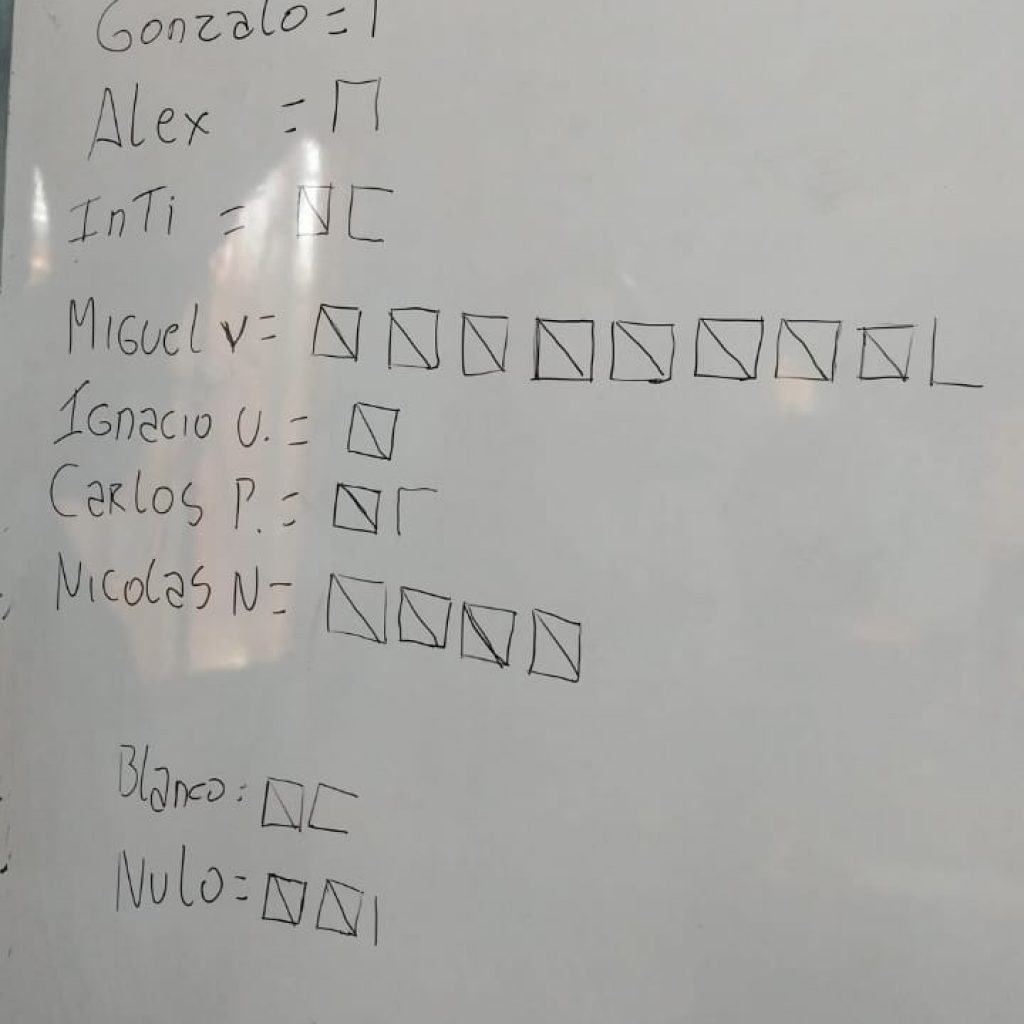 Gonzalo = I
Alex =
InTi =
Miguel V =
Ignacio U. =
Carlos P. =
Nicolas N =
Blanco:
Nulo =